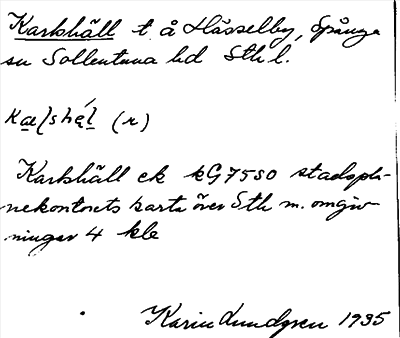 Karkhäll t. å Hässelby, Spånga
sn Sollentuna hd Sthl.
(r)
Karkhäll ek kG7580 stadspla-
nekontorets karta över Sth m. omgiv-
ningar 4 kle
Karin Lundgren 1935